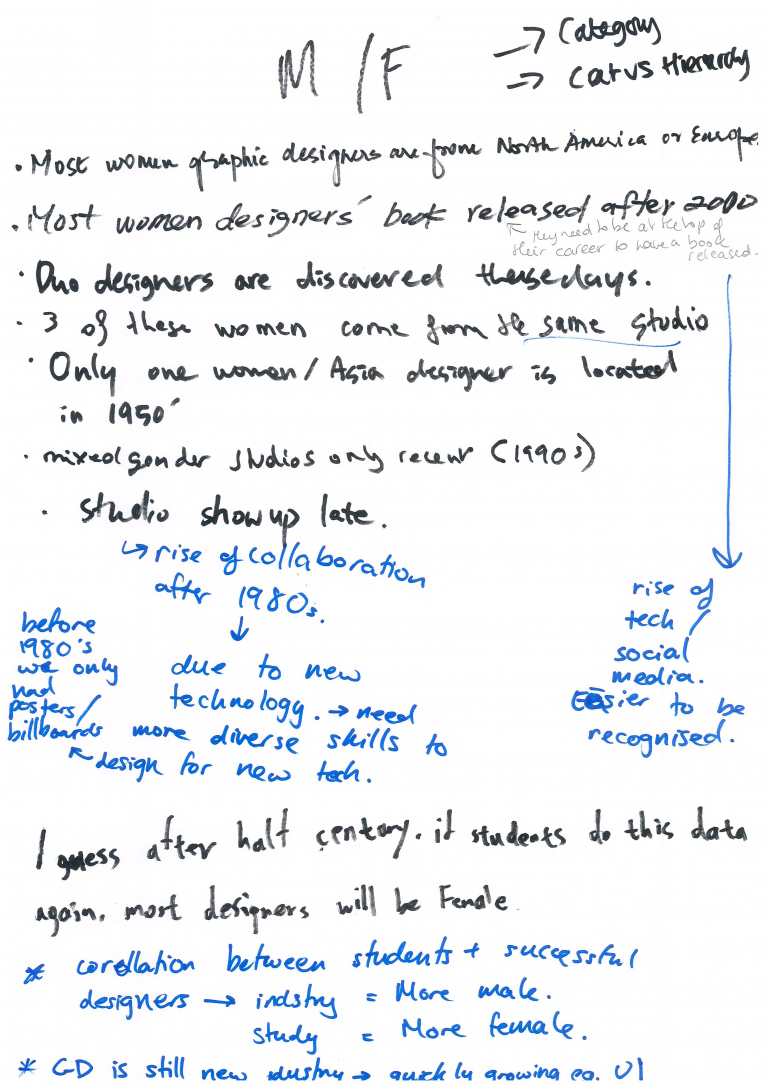 M / F
→ Category
→ Cat vs Hierarchy
· Most women graphic designers are from North America or Europe.
· Most women designers' book released after 2000
↖ they need to be at the top of
their career to have a book
released.
· Duo designers are discovered these days.
· 3 of these women come from the same studio
· Only one women / Asia designer is located
in 1950'
· mixed gender studios only recent (1990s)
· Studio show up late.
↳ rise of collaboration
after 1980s.
↓
due to new
technology. → need
more diverse skills to
design for new tech.
before
1980's
we only
had
posters/
billboards
rise of
tech /
social
media.
Easier to be
recognised.
I guess after half century. if students do this data
again. most designers will be Female
* corellation between students + successful
designers → indstry = More male.
study = More female.
* GD is still new → quickly growing eg. UI